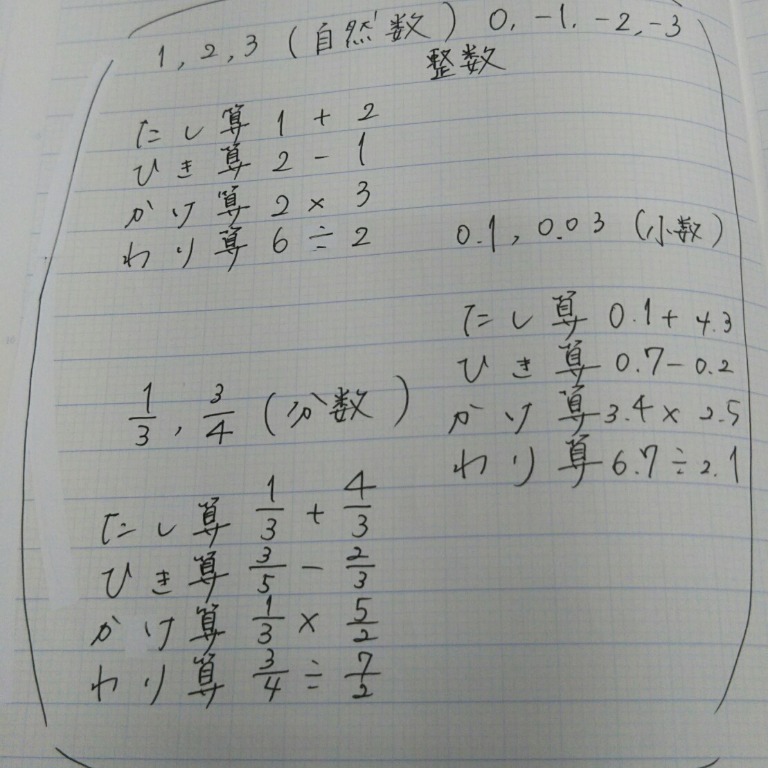 1, 2, 3 (自然数) 0, -1, -2, -3
整数
たし算 1 + 2
ひき算 2 - 1
かけ算 2 × 3
わり算 6 ÷ 2
0.1, 0.03 (小数)
たし算 0.1 + 4.3
ひき算 0.7 - 0.2
かけ算 3.4 × 2.5
わり算 6.7 ÷ 2.1
1/3, 3/4 (分数)
たし算 1/3 + 4/3
ひき算 3/5 - 2/3
かけ算 1/3 × 5/2
わり算 3/4 ÷ 7/2